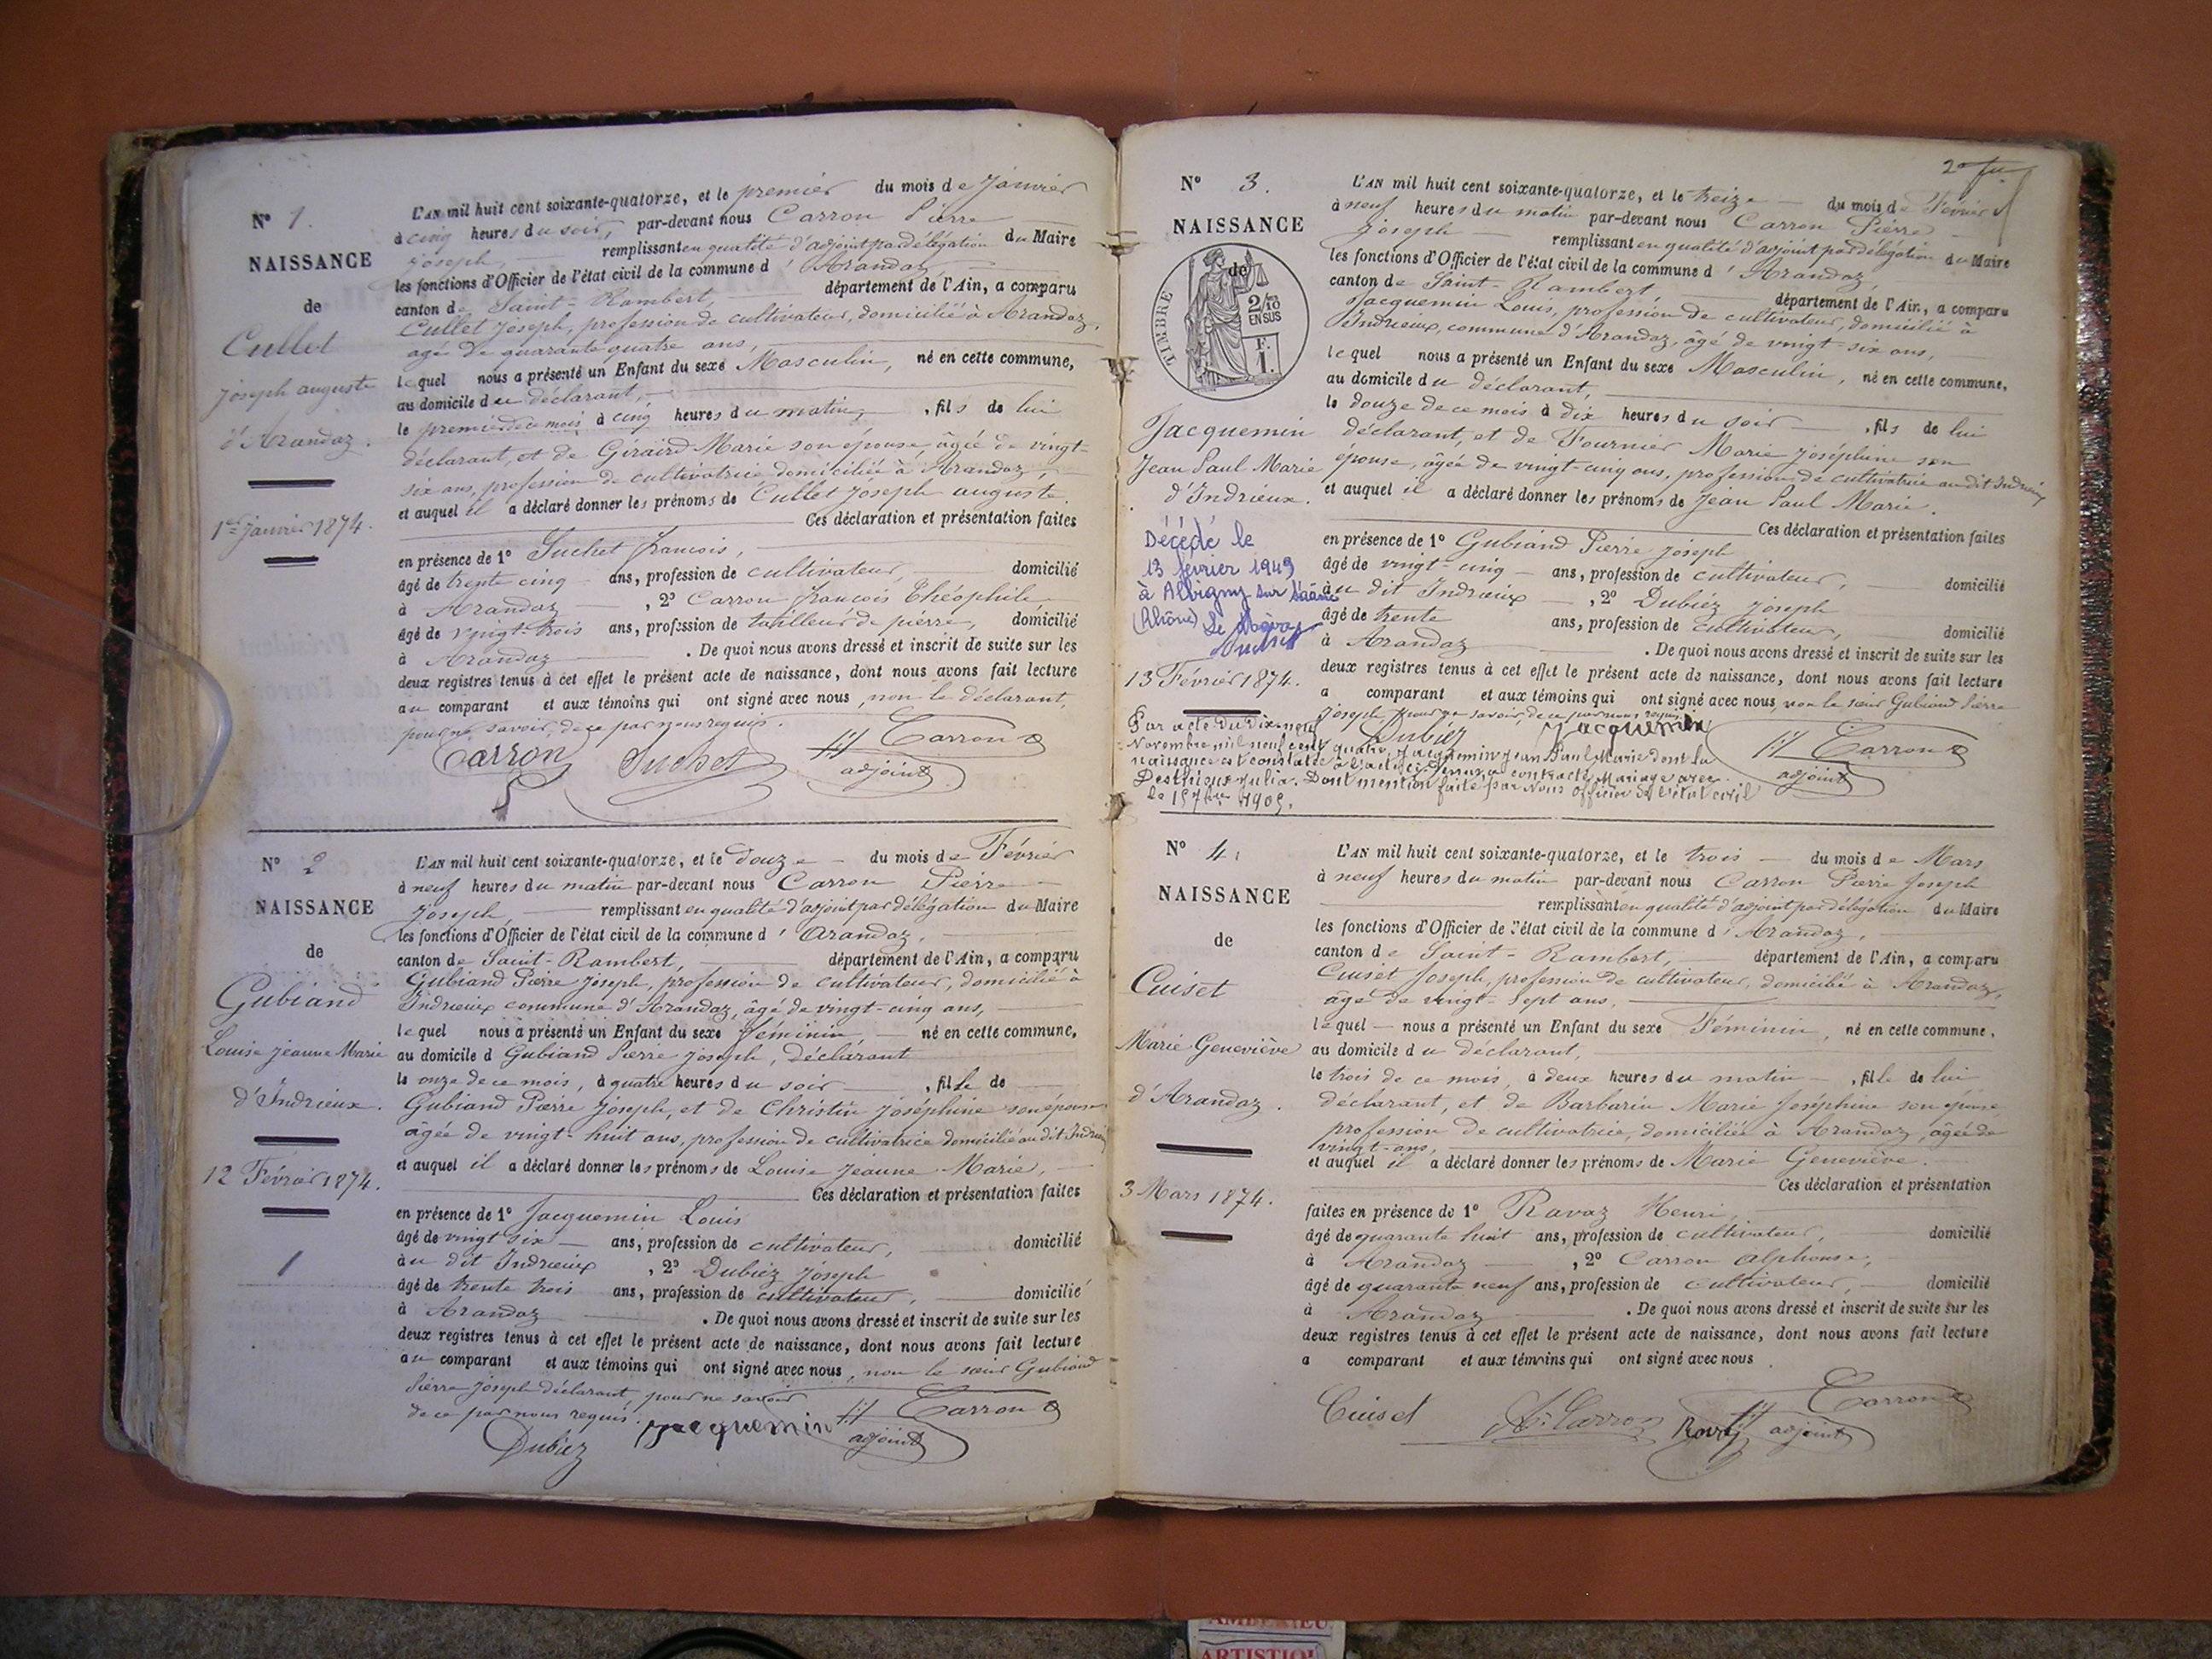 N° 1.
NAISSANCE
de
Cullet
Joseph auguste
d'Arandaz.
1er janvier 1874.
L'AN mil huit cent soixante-quatorze, et le premier du mois de Janvier
à cinq heures du soir, par-devant nous Carron Pierre
Joseph, remplissant en qualité d'adjoint par délégation du Maire
les fonctions d'Officier de l'état civil de la commune d'Arandaz,
canton de Saint-Rambert, département de l'Ain, a comparu
Cullet Joseph, profession de cultivateur, domicilié à Arandaz,
agé de quarante quatre ans,
lequel nous a présenté un Enfant du sexe Masculin, né en cette commune,
au domicile du déclarant,
le premier de ce mois à cinq heures du matin, , fils de lui
déclarant, et de Giraird Marie son épouse, âgée de vingt-
six ans, profession de cultivatrice domiciliée à Arandaz,
et auquel il a déclaré donner les prénoms de Cullet Joseph auguste.
Ces déclaration et présentation faites
en présence de 1° Suchet françois,
âgé de trente cinq ans, profession de cultivateur, domicilié
à Arandaz , 2° Carron françois Théophile
âgé de vingt-trois ans, profession de tailleur de pierre, domicilié
à Arandaz . De quoi nous avons dressé et inscrit de suite sur les
deux registres tenus à cet effet le présent acte de naissance, dont nous avons fait lecture
au comparant et aux témoins qui ont signé avec nous, non le déclarant,
pour ne savoir, de ce par nous requis.
Carron Suchet Carron
adjoint
N° 2
NAISSANCE
de
Gubiand
Louise Jeanne Marie
d'Indrieux.
12 Février 1874.
L'AN mil huit cent soixante-quatorze, et le douze du mois de Février
à neuf heures du matin par-devant nous Carron Pierre
Joseph, remplissant en qualité d'adjoint par délégation du Maire
les fonctions d'Officier de l'état civil de la commune d'Arandaz,
canton de Saint-Rambert, département de l'Ain, a comparu
Gubiand Pierre Joseph, profession de cultivateur, domicilié à
Indrieux commune d'Arandaz, âgé de vingt-cinq ans,
lequel nous a présenté un Enfant du sexe féminin, né en cette commune,
au domicile d Gubiand Pierre Joseph, déclarant
le onze de ce mois, à quatre heures du soir , fille de
Gubiand Pierre Joseph, et de Christin Joséphine son épouse
âgée de vingt-huit ans, profession de cultivatrice domiciliée au dit Indrieux
et auquel il a déclaré donner les prénoms de Louise Jeanne Marie,
Ces déclaration et présentation faites
en présence de 1° Jacquemin Louis
âgé de vingt six ans, profession de cultivateur, domicilié
au dit Indrieux , 2° Dubiez Joseph
âgé de trente trois ans, profession de cultivateur, domicilié
à Arandaz . De quoi nous avons dressé et inscrit de suite sur les
deux registres tenus à cet effet le présent acte de naissance, dont nous avons fait lecture
au comparant et aux témoins qui ont signé avec nous, non le sieur Gubiand
Pierre Joseph déclarant, pour ne savoir
de ce par nous requis.
Dubiez Jacquemin Carron
adjoint
2e fu
N° 3.
NAISSANCE
de
TIMBRE
2/10 EN SUS
F. 1.
Jacquemin
Jean Paul Marie
d'Indrieux.
Décédé le
13 février 1949
à Albigny sur Saône
(Rhône) Le Maire
Suchet
13 Février 1874.
L'AN mil huit cent soixante-quatorze, et le treize du mois de Février
à neuf heures du matin par-devant nous Carron Pierre
Joseph remplissant en qualité d'adjoint par délégation du Maire
les fonctions d'Officier de l'état civil de la commune d'Arandaz
canton de Saint-Rambert, département de l'Ain, a comparu
Jacquemin Louis, profession de cultivateur, domicilié à
Indrieux, commune d'Arandaz, âgé de vingt-six ans,
lequel nous a présenté un Enfant du sexe Masculin, né en cette commune,
au domicile du déclarant,
le douze de ce mois à dix heures du soir , fils de lui
déclarant, et de Fournier Marie Joséphine son
épouse, âgée de vingt-cinq ans, profession de cultivatrice au dit Indrieux
et auquel il a déclaré donner les prénoms de Jean Paul Marie.
Ces déclaration et présentation faites
en présence de 1° Gubiand Pierre Joseph
âgé de vingt-cinq ans, profession de cultivateur, domicilié
au dit Indrieux , 2° Dubiez Joseph
âgé de trente ans, profession de cultivateur, domicilié
à Arandaz . De quoi nous avons dressé et inscrit de suite sur les
deux registres tenus à cet effet le présent acte de naissance, dont nous avons fait lecture
a comparant et aux témoins qui ont signé avec nous, non le sieur Gubiand Pierre
Joseph, pour ne savoir, de ce par nous requis.
Dubiez Jacquemin Carron
adjoint
Par acte du dix-neuf
Novembre mil neuf cent quatre, Jacquemin Jean Paul Marie dont la
naissance est constatée à l'acte ci-dessus, a contracté Mariage avec
Desthieux Julia. Dont mention faite par Nous officier de l'état civil
le 15 7bre 1905.
N° 4.
NAISSANCE
de
Cuiset
Marie Geneviève
d'Arandaz.
3 Mars 1874.
L'AN mil huit cent soixante-quatorze, et le trois du mois de Mars
à neuf heures du matin par-devant nous Carron Pierre Joseph
remplissant en qualité d'adjoint par délégation du Maire
les fonctions d'Officier de l'état civil de la commune d'Arandaz,
canton de Saint-Rambert, département de l'Ain, a comparu
Cuiset Joseph, profession de cultivateur, domicilié à Arandaz,
âgé de vingt-sept ans,
lequel nous a présenté un Enfant du sexe Féminin, né en cette commune,
au domicile du déclarant,
le trois de ce mois, à deux heures du matin , fille de lui
déclarant, et de Barbarin Marie Joséphine son épouse
profession de cultivatrice, domiciliée à Arandaz, âgée de
vingt-ans,
et auquel il a déclaré donner les prénoms de Marie Geneviève.
Ces déclaration et présentation
faites en présence de 1° Ravaz Henri,
âgé de quarante huit ans, profession de cultivateur, domicilié
à Arandaz , 2° Carron alphonse,
âgé de quarante neuf ans, profession de cultivateur, domicilié
à Arandaz . De quoi nous avons dressé et inscrit de suite sur les
deux registres tenus à cet effet le présent acte de naissance, dont nous avons fait lecture
a comparant et aux témoins qui ont signé avec nous.
Cuiset A. Carron Ravaz Carron
adjoint